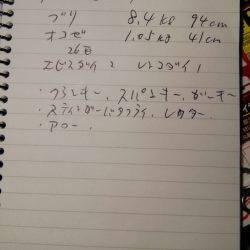 ブリ 8.4kg 94cm
オコゼ 1.05kg 41cm
26日
エビスダイ 2 レンコダイ 1
・フランキー、スパンキー、ガーキー
・スティンガーバタフライ、レクター、
・アロー、